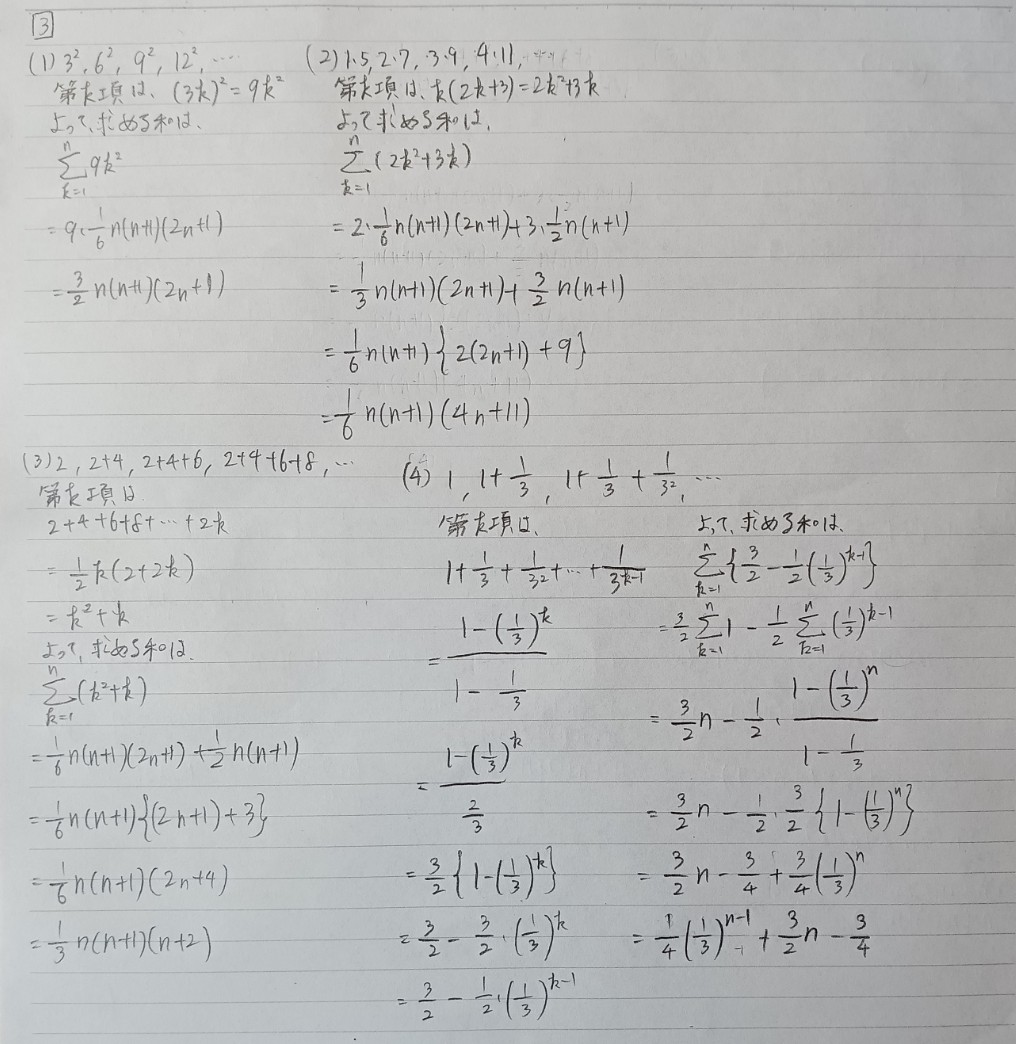 3
(1) 3², 6², 9², 12², …
第k項は、(3k)² = 9k²
よって、求める和は、
∑[k=1→n] 9k²
= 9・1/6 n(n+1)(2n+1)
= 3/2 n(n+1)(2n+1)
(2) 1・5, 2・7, 3・9, 4・11, …
第k項は、k(2k+3) = 2k²+3k
よって求める和は、
∑[k=1→n] (2k²+3k)
= 2・1/6 n(n+1)(2n+1) + 3・1/2 n(n+1)
= 1/3 n(n+1)(2n+1) + 3/2 n(n+1)
= 1/6 n(n+1){2(2n+1)+9}
= 1/6 n(n+1)(4n+11)
(3) 2, 2+4, 2+4+6, 2+4+6+8, …
第k項は
2+4+6+8+…+2k
= 1/2 k(2+2k)
= k²+k
よって、求める和は、
∑[k=1→n] (k²+k)
= 1/6 n(n+1)(2n+1) + 1/2 n(n+1)
= 1/6 n(n+1){(2n+1)+3}
= 1/6 n(n+1)(2n+4)
= 1/3 n(n+1)(n+2)
(4) 1, 1+1/3, 1+1/3+1/3², …
第k項は、
1+1/3+1/3²+…+1/3^(k-1)
= (1-(1/3)^k)/(1-1/3)
= (1-(1/3)^k)/(2/3)
= 3/2 {1-(1/3)^k}
= 3/2 - 3/2・(1/3)^k
= 3/2 - 1/2・(1/3)^(k-1)
よって、求める和は、
∑[k=1→n] {3/2 - 1/2(1/3)^(k-1)}
= 3/2 ∑[k=1→n] 1 - 1/2 ∑[k=1→n] (1/3)^(k-1)
= 3/2 n - 1/2・(1-(1/3)^n)/(1-1/3)
= 3/2 n - 1/2・3/2 {1-(1/3)^n}
= 3/2 n - 3/4 + 3/4 (1/3)^n
= 1/4 (1/3)^(n-1) + 3/2 n - 3/4